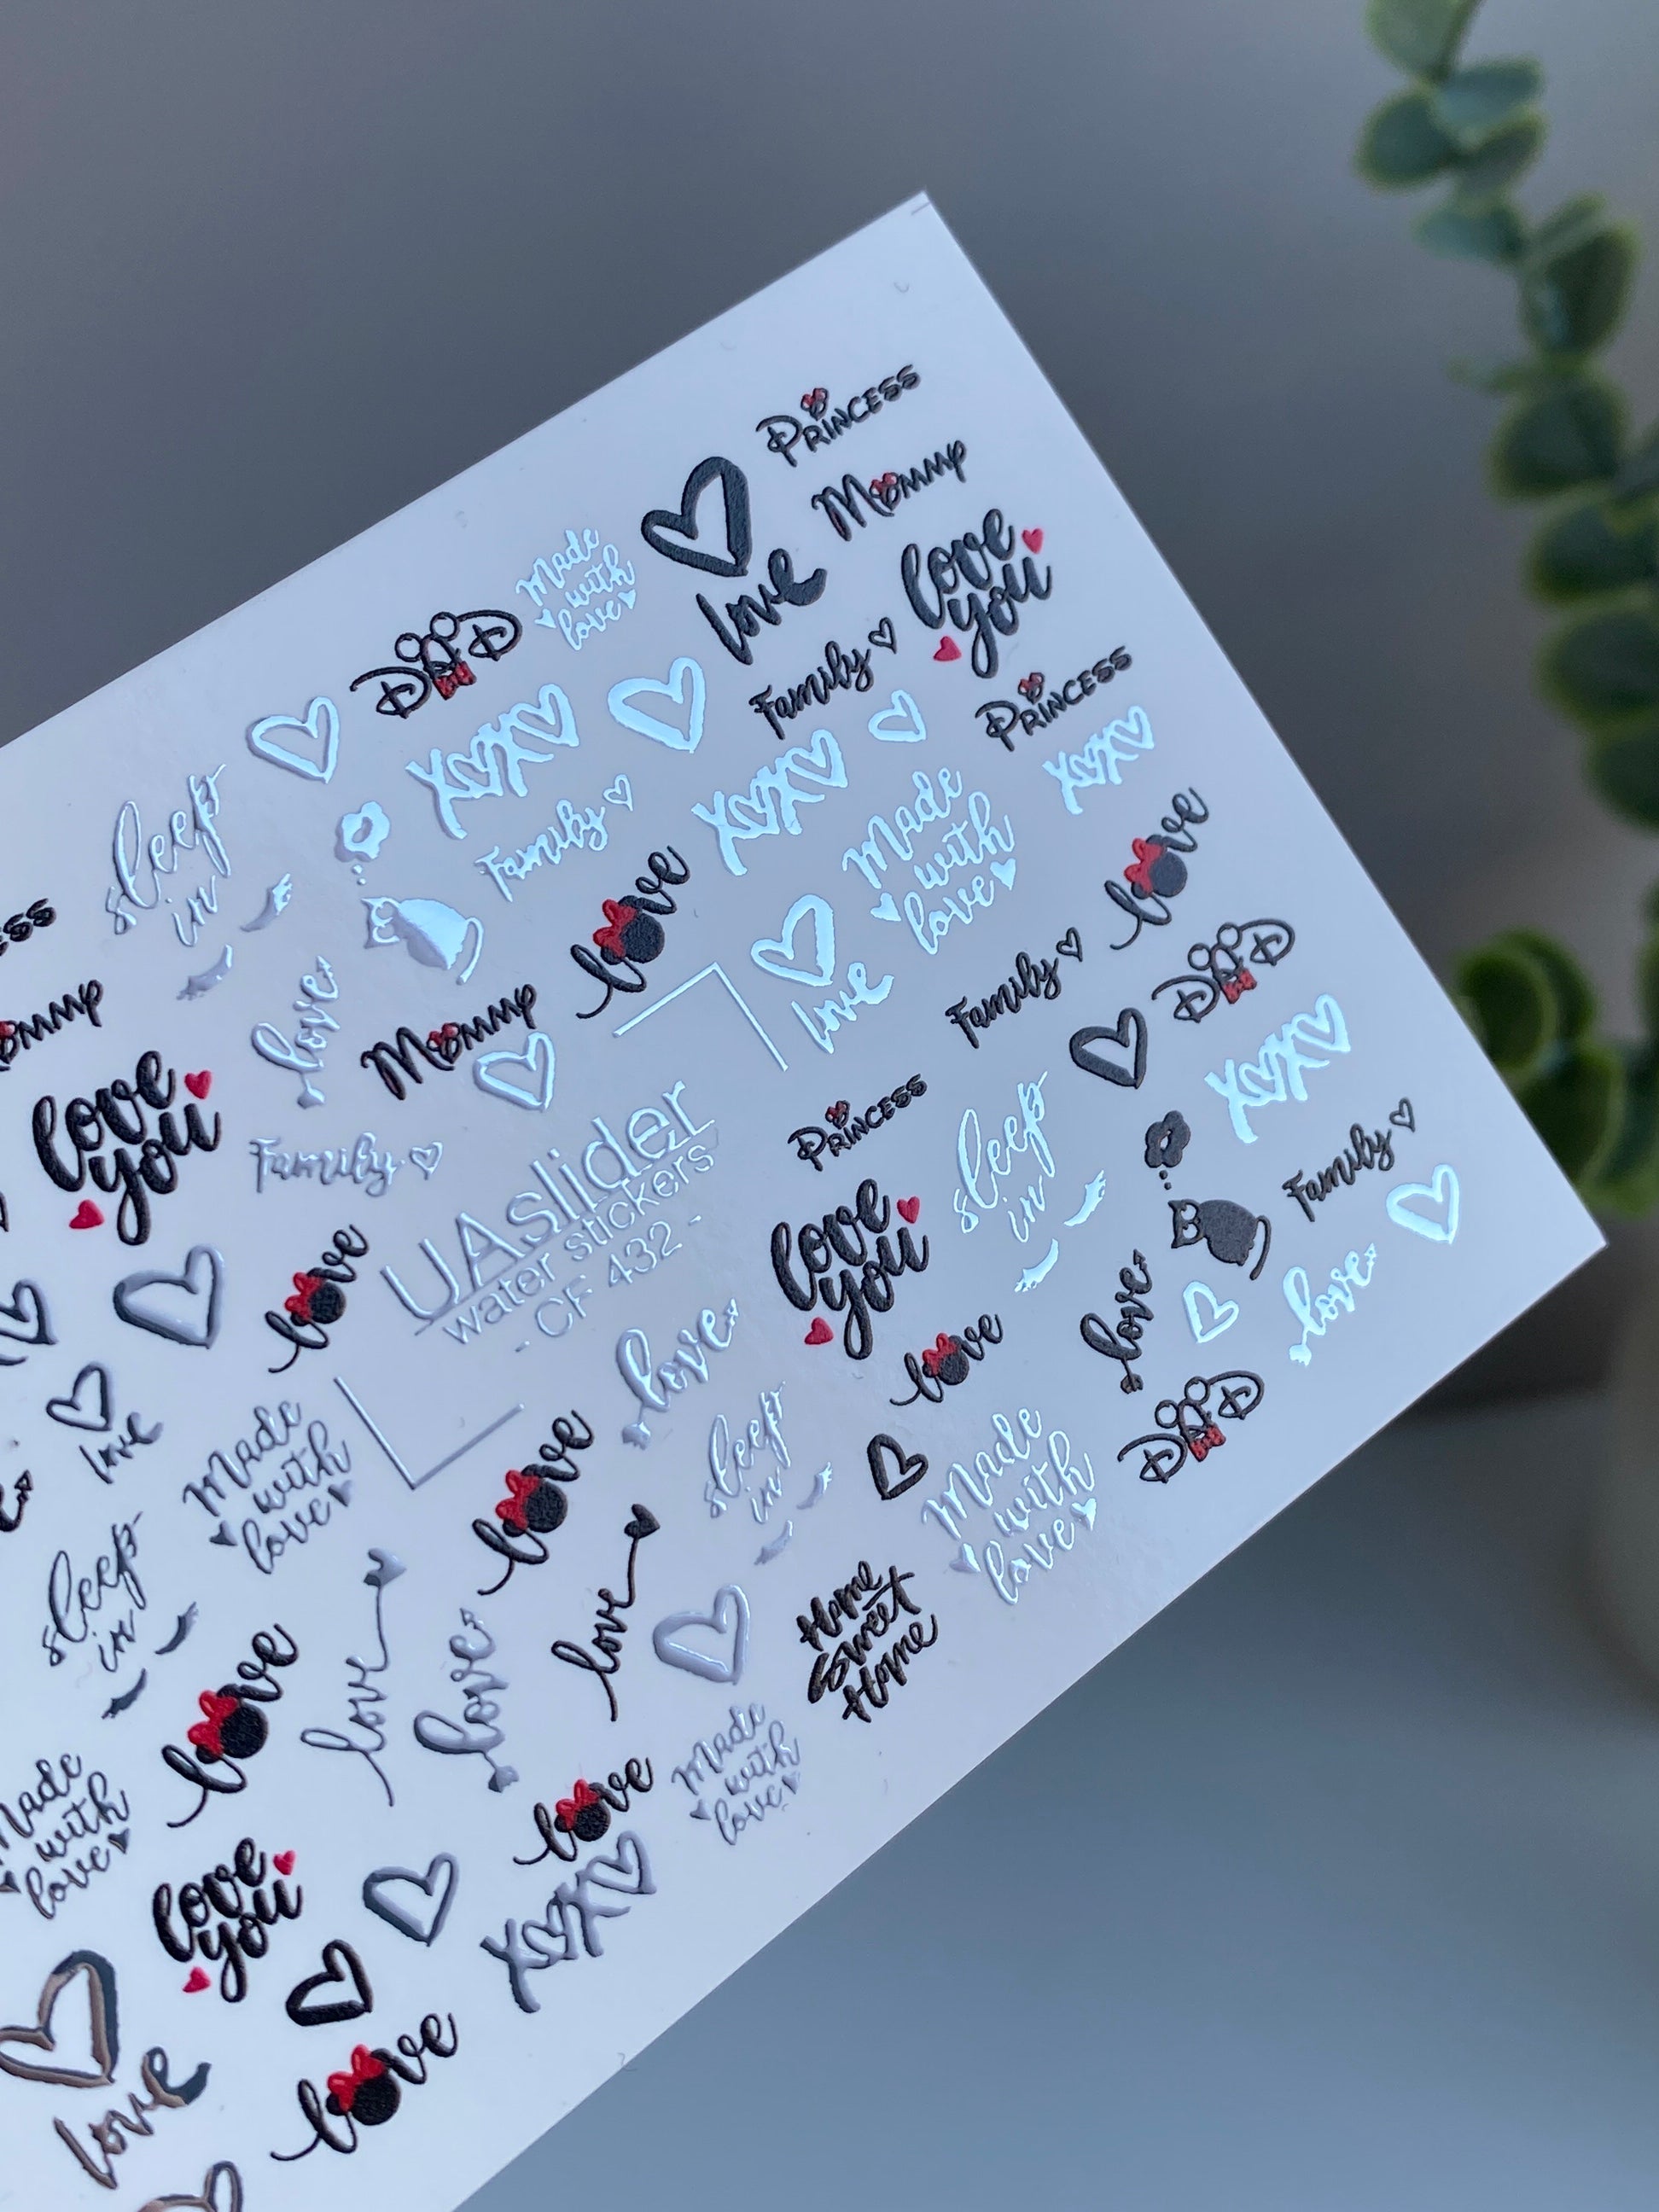 PRINCESS
Mommy
love
you
love
Made
with
love
DAD
Family
PRINCESS
XOXO
XOXO
XOXO
sleep
in
Family
Made
with
love
love
love
love
Mommy
love
Family
love
DAD
XOXO
love
you
Family
UAslider
water stickers
- CF 432 -
PRINCESS
sleep
in
love
you
Family
love
love
love
love
love
DAD
love
Made
with
love
sleep
in
love
Made
with
love
sleep
in
love
love
love
love
Home
Sweet
Home
Made
with
love
love
Made
with
love
love
you
XOXO
love
love